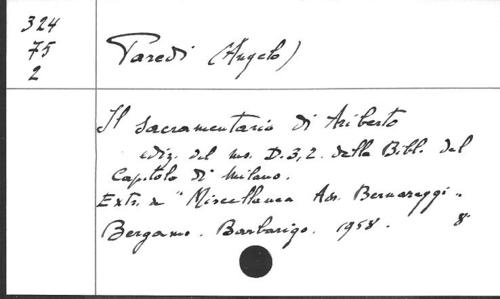 324
75
2
Paredi (Angelo)
Il Sacramentario di Ariberto
ediz. del ms. D.3,2. della Bibl. del
Capitolo di Milano.
Extr. de "Miscellanea Adr. Bernareggi"
Bergamo. Barbarigo. 1958. 8°